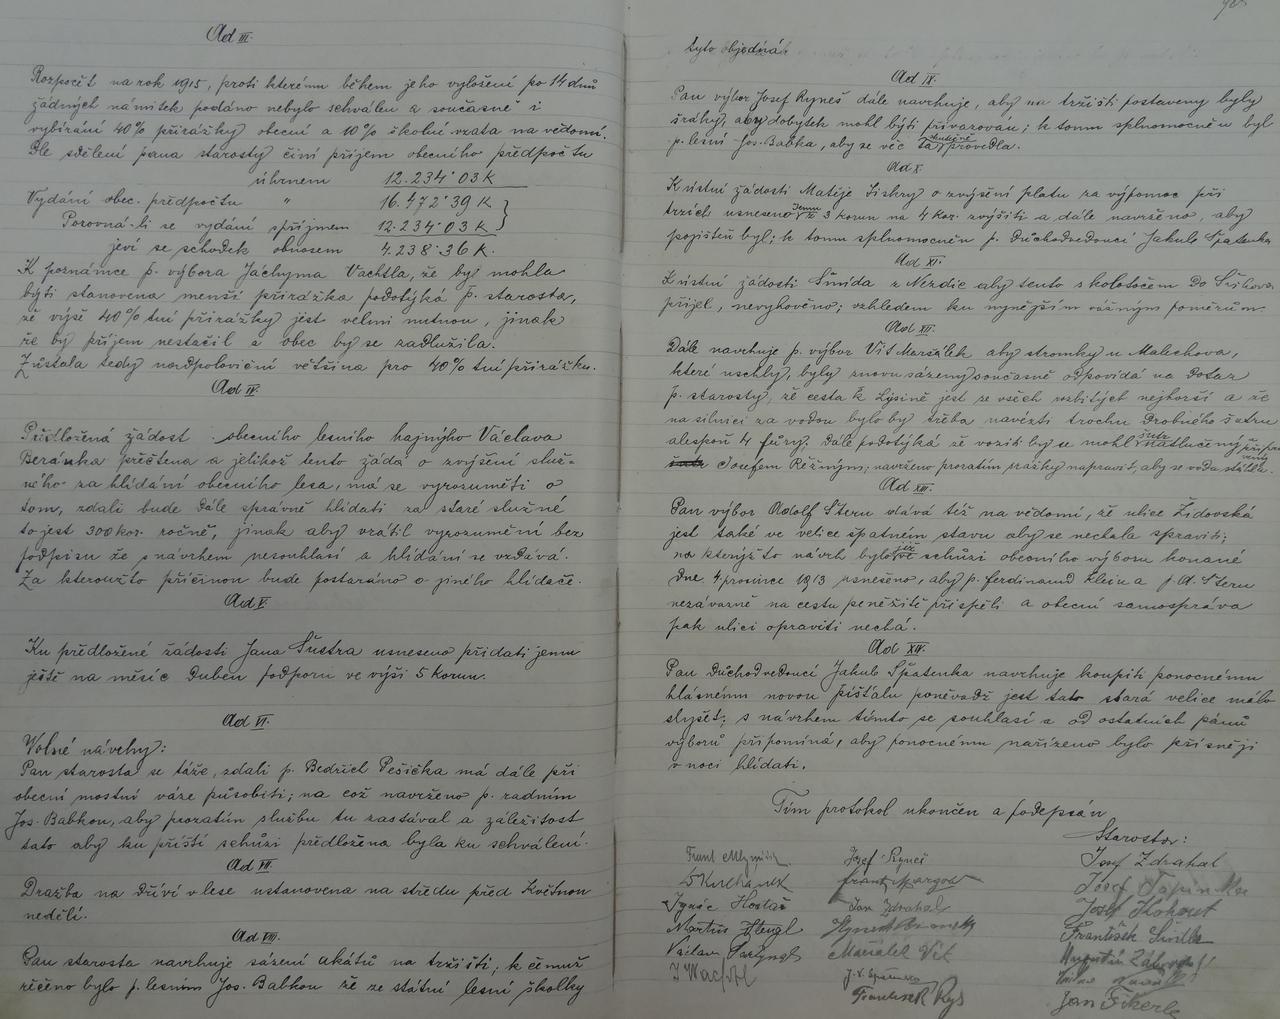 Ad III.
Rozpočet na rok 1915, proti kterému během jeho vyložení po 14 dnů
žádných námitek podáno nebylo schválen a současně i
vybírání 40% přirážky obecní a 10% školní vzata na vědomí.
Dle sdělení pana starosty činí příjem obecního předpočtu
úhrnem 12.234·03 K
Vydání obec. předpočtu " 16.472·39 K
Porovná-li se vydání s příjmem 12.234·03 K
jeví se schodek obnosem 4.238·36 K.
K poznámce p. výbora Jáchyma Vachtla, že by mohla
býti stanovena menší přirážka podotýká p. starosta,
že výše 40% tní přirážky jest velmi nutnou, jinak
že by příjem nestačil a obec by se zadlužila.
Zůstala tedy nadpoloviční většina pro 40% tní přirážku.
Ad IV.
Předložená žádost obecního lesního hajnýho Václava
Beránka přečtena a jelikož tento žádá o zvýšení služ-
ného za hlídání obecního lesa, má se vyrozuměti o
tom, zdali bude dále správně hlídati za staré služné
to jest 300 kor. ročně, jinak aby vrátil vyrozumění bez
podpisu že s návrhem nesouhlasí a hlídání se vzdává.
Za kteroužto příčinou bude postaráno o jiného hlídače.
Ad V.
Ku předložené žádosti Jana Šustra usneseno přidati jemu
ještě na měsíc Duben podporu ve výši 5 korun.
Ad VI.
Volné návrhy:
Pan starosta se táže, zdali p. Bedřich Pešička má dále při
obecní mostní váze působiti; na což navrženo p. radním
Jos. Babkou, aby prozatím službu tu zastával a záležitost
tato aby ku příští schůzi předložena byla ku schválení.
Ad VII.
Dražba na dříví v lese ustanovena na středu před Květnou
nedělí.
Ad VIII.
Pan starosta navrhuje sázení akátů na tržišti; k čemuž
řečeno bylo p. lesním Jos. Babkou že ze státní lesní školky
tyto objedná.
Ad IX.
Pan výbor Josef Ryneš dále navrhuje, aby na tržišti postaveny byly
šraňky, aby dobytek mohl býti přivazován; k tomu splnomocněn byl
p. lesní Jos. Babka, aby se věc ta skutečně provedla.
Ad X.
K ústní žádosti Matěje Sishry o zvýšení platu za výpomoc při
trzích usneseno jemu z 3 korun na 4 kor. zvýšiti a dále navrženo, aby
pojištěn byl; k tomu splnomocněn p. důchodvedoucí Jakub Špatenka
Ad XI.
K ústní žádosti Šmída z Nezdic aby tento s kolotočem do
přijel, nevyhověno; vzhledem ku nynějším vážným poměrům.
Ad XII.
Dále navrhuje p. výbor Vít Maršálek aby stromky u Malechova,
které uschly, byly znovu sázeny současně odpovídá na dotaz
p. starosty, že cesta k Lysině jest ze všech zbitých nejhorší a že
na silnici za vodou bylo by třeba navézti trochu drobného šutru
alespoň 4 fůry. Dále podotýká že voziti by se mohl šutr natlučený
Josefem Režným; navrženo prozatím strážky napraviti, aby se voda stáhla.
Ad XIII.
Pan výbor Adolf Stern dává též na vědomí, že ulice Židovská
jest také ve velice špatném stavu aby se nechala spraviti;
na kterýžto návrh bylo již ve schůzi obecního výboru konané
dne 4 prosince 1913 usneseno, aby p. Ferdinand Klein a p. A. Stern
nezávazně na cestu peněžitě přispěli a obecní samospráva
pak ulici opraviti nechá.
Ad XIV.
Pan důchodvedoucí Jakub Špatenka navrhuje koupiti ponocnému
hlásnému novou píšťalu poněvadž jest tato stará velice málo
slyšet; s návrhem tímto se souhlasí a od ostatních pánů
výborů připomíná, aby ponocnému nařízeno bylo přísněji
v noci hlídati.
Tím protokol ukončen a podepsán
Starosta:
Josef Ryneš
Josef Zdrahal
Josef
Ignác Hostaš
Jan Zdrahal
Josef Kohout
Martin Hengl
František
Václav
Maršálek Vít
František Rys
Jan Fikerle